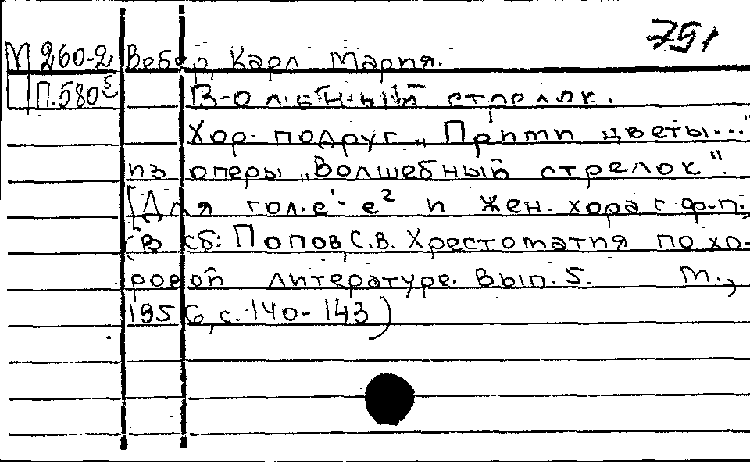 751
М 260-2 Вебер, Карл Мария.
П.580⁵ В-о л.е-н-ы-й стрелок.
Хор подруг „Прими цветы..."
из оперы „Волшебный стрелок".
[Для гол. е¹-е² и жен. хора с ф-п.]
(В сб: Попов, С.В. Хрестоматия по хо-
ровой литературе. Вып. 5. М.,
1956, с. 140-143)